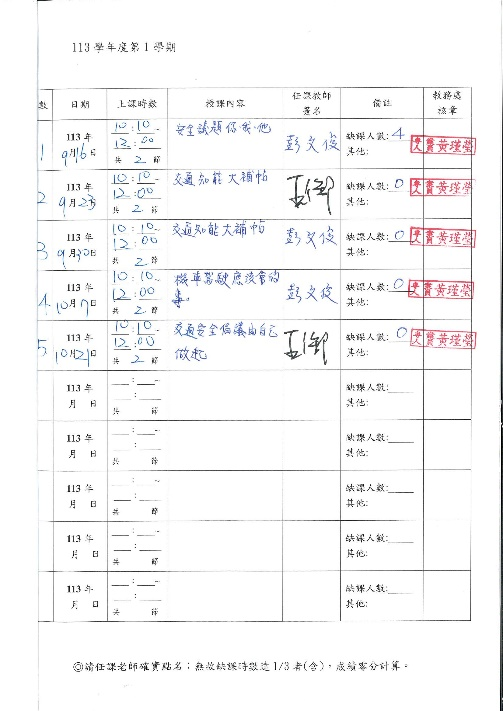 113學年度第1學期
數 日期 上課時數 授課內容 任課教師簽名 備註 教務處核章
1 113年9月16日 10:10~12:00 共2節 安全議題你我他 彭文俊 缺課人數:4 其他: 黃瑾瑩
2 113年9月23日 10:10~12:00 共2節 交通知能大補帖 缺課人數:0 其他: 黃瑾瑩
3 113年9月30日 10:10~12:00 共2節 交通知能大補帖 彭文俊 缺課人數:0 其他: 黃瑾瑩
4 113年10月7日 10:10~12:00 共2節 機車駕駛應該會的事。 彭文俊 缺課人數:0 其他: 黃瑾瑩
5 113年10月21日 10:10~12:00 共2節 交通安全倡議由自己做起 缺課人數:0 其他: 黃瑾瑩
113年 月 日 __:__~__:__ 共 節 缺課人數:____ 其他:
113年 月 日 __:__~__:__ 共 節 缺課人數:____ 其他:
113年 月 日 __:__~__:__ 共 節 缺課人數:____ 其他:
113年 月 日 __:__~__:__ 共 節 缺課人數:____ 其他:
113年 月 日 __:__~__:__ 共 節 缺課人數:____ 其他:
◎請任課老師確實點名;無故缺課時數達1/3者(含),成績零分計算。